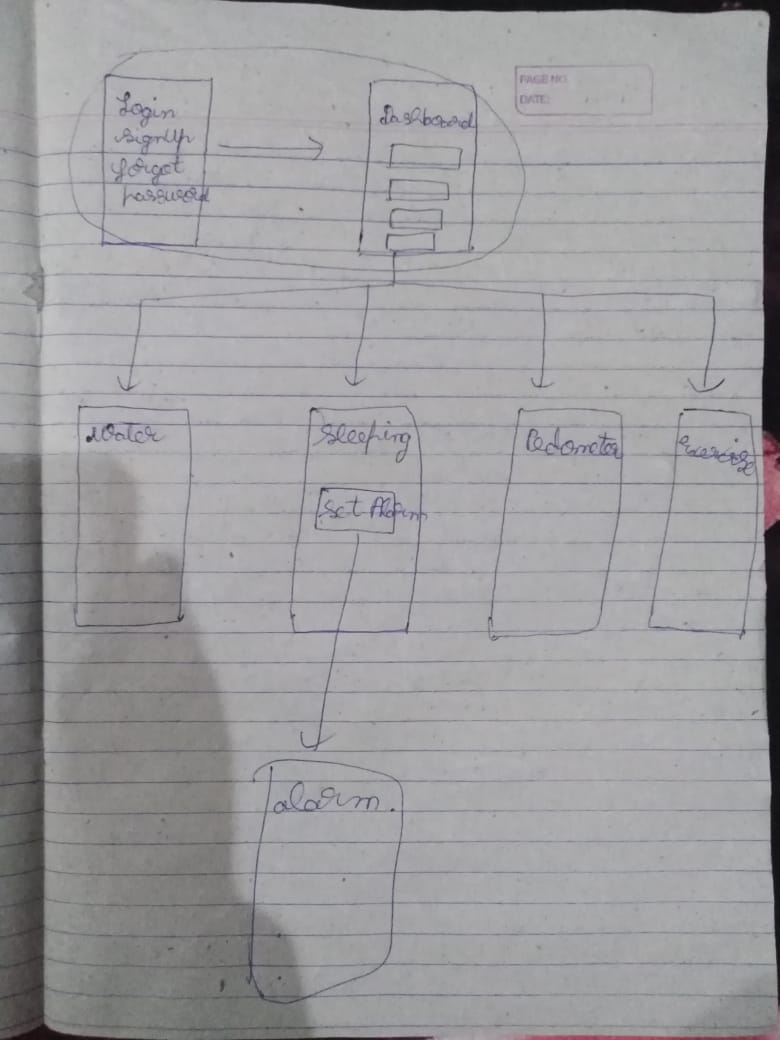 PAGE NO:
DATE:
Login
SignUp
forgot
password
Dashboard
Water
Sleeping
Pedometer
Exercise
Set Alarm
alarm.